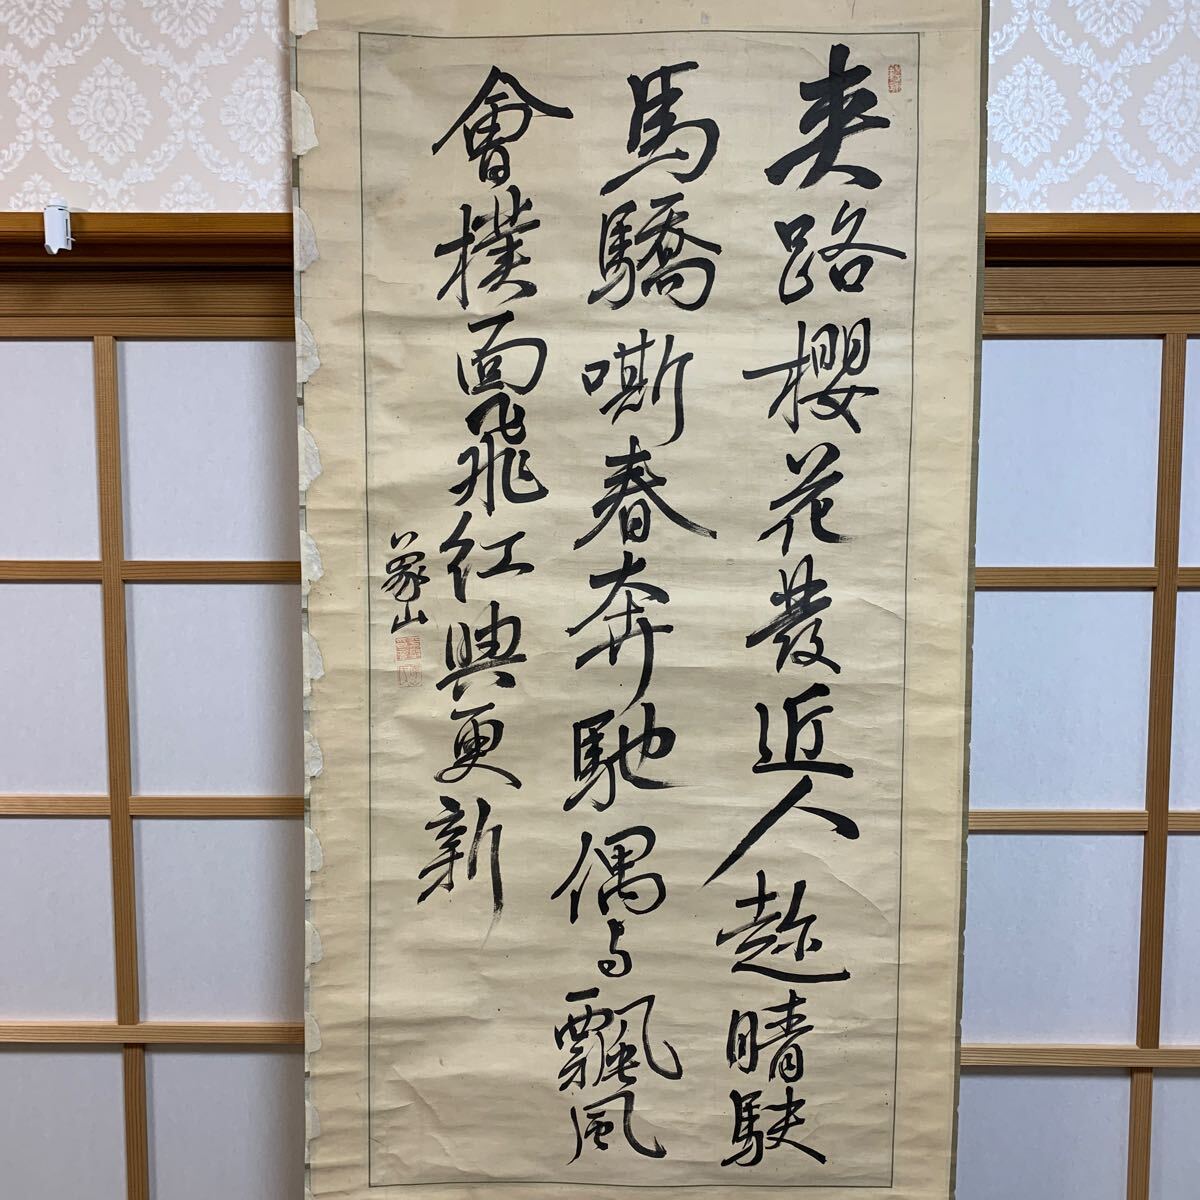 夾路櫻花發近人趁晴駃
馬驕嘶春奔馳偶与飄風
會撲面飛紅興更新
象山